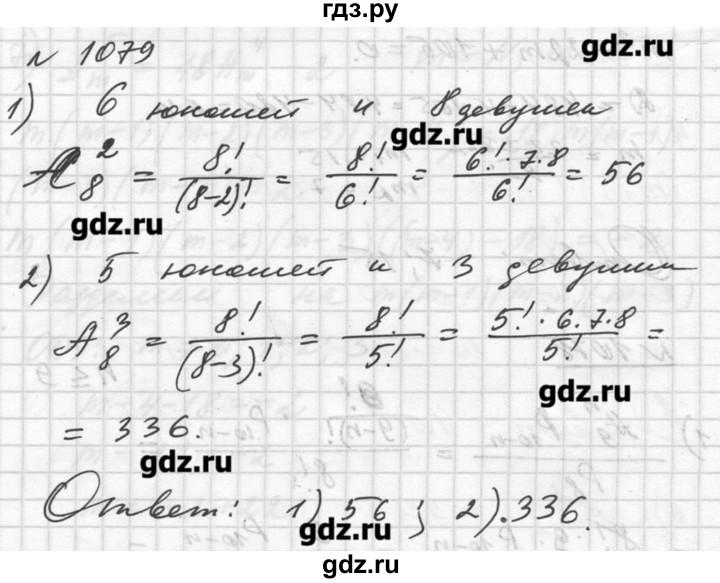 гдз.ру
№ 1079
gdz.ru
1) 6 юношей и 8 девушек
gdz.ru
A₈² = 8!/(8-2)! = 8!/6! = 6!·7·8/6! = 56
gdz.ru
2) 5 юношей и 3 девушки
A₈³ = 8!/(8-3)! = 8!/5! = 5!·6·7·8/5! =
gdz.ru
= 336.
gdz.ru
Ответ: 1) 56 ; 2).336.
gdz.ru
gdz.ru